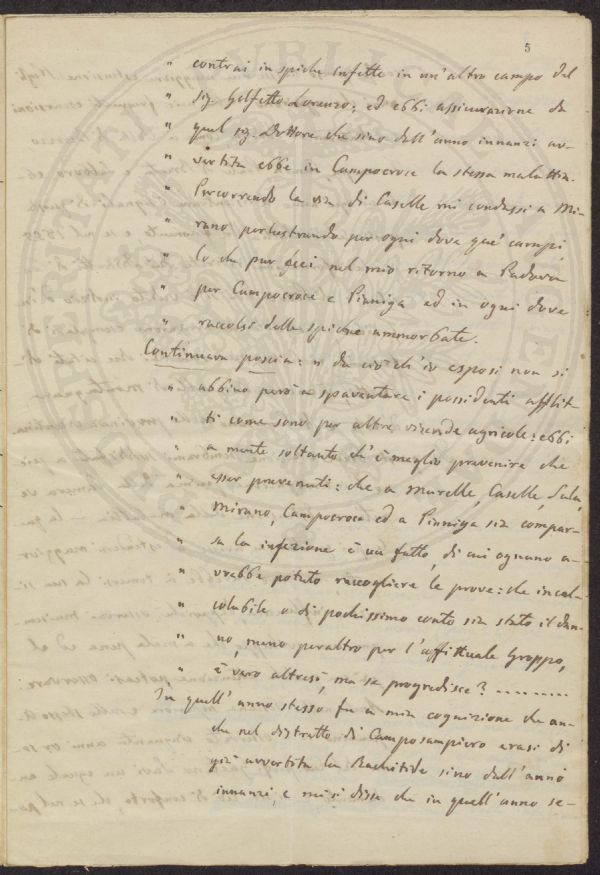 5
" contrai in spiche infette in un'altro campo del
" sig. Golfetto Lorenzo; ed ebbi assicurazione da
" quel sig. Dottore che sino dall'anno innanzi av-
" vertita ebbe in Campocroce la stessa malattia.
" Percorrendo la via di Caselle mi condussi a Mi-
" rano perlustrando per ogni dove que' campi,
" lo che pur feci nel mio ritorno a Padova
" per Campocroce e Pianiga ed in ogni dove
" raccolsi delle spiche ammorbate.
Continuava poscia: " da ciò ch'io esposi non si
" abbino però a spaventare i possidenti afflit-
" ti come sono per altre vicende agricole: ebbi
" a mente soltanto ch'è meglio prevenire che
" esser prevenuti: che a Murelle, Caselle, Sala,
" Mirano, Campocroce ed a Pianiga sia compar-
" sa la infezione è un fatto, di cui ognuno a-
" vrebbe potuto raccogliere le prove: che incal-
" colabile o di pochissimo conto sia stato il dan-
" no, meno peraltro per l'affittuale Groppo,
" è vero altresì, ma se progredisce? .........
In quell'anno stesso fu a mia cognizione che an-
che nel distretto di Camposampiero erasi di
già avvertita la Rachitide sino dall'anno
innanzi, e mi si disse che in quell'anno se-